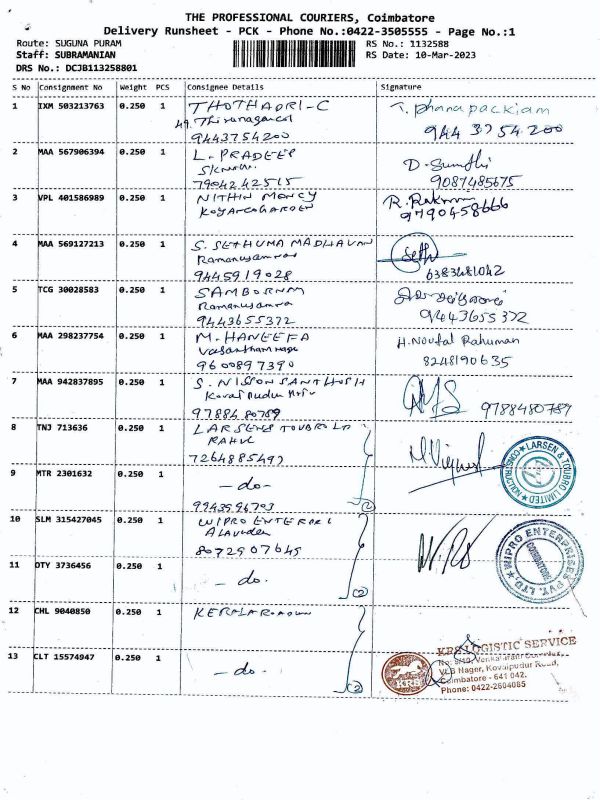 THE PROFESSIONAL COURIERS, Coimbatore
Delivery Runsheet - PCK - Phone No.:0422-3505555 - Page No.:1
Route: SUGUNA PURAM
Staff: SUBRAMANIAN
DRS No.: DCJB113258801
RS No.: 1132588
RS Date: 10-Mar-2023
S No Consignment No Weight PCS Consignee Details Signature
1 IXM 503213763 0.250 1 THOTHADRI-C T. Dhanapackiam
9443754200 944 3754 200
2 MAA 567906394 0.250 1 L. PRADEEP D. Sumathi
7904242515 9087485675
3 VPL 401586989 0.250 1 NITHIN MONCY R.
9790458666
4 MAA 569127213 0.250 1 S. SETHUMA MADHAVAN
Sethu
9445919028 6383481042
5 TCG 30028583 0.250 1
9443655372 9443655372
6 MAA 298237754 0.250 1 M. HANEEFA H. Noufal Rahuman
9600897390 8248190635
7 MAA 942837895 0.250 1 S. NISSON SANTHOSH
Kovaipudur
9788480789 9788480789
8 TNJ 713636 0.250 1 LARSEN TOUBRO
RAHUL
7264885492
LARSEN & TOUBRO LIMITED
CONSTRUCTION
9 MTR 2301632 0.250 1 - do -
9943596703 2
10 SLM 315427045 0.250 1 WIPRO ENTERPRI
8072907645
WIPRO ENTERPRISES PVT. LTD.
COIMBATORE
11 OTY 3736456 0.250 1 - do -
2
12 CHL 9040850 0.250 1
13 CLT 15574947 0.250 1 - do -
2
KRS LOGISTIC SERVICE
VLB Nagar, Kovaipudur Road,
Coimbatore - 641 042.
Phone: 0422-2604085